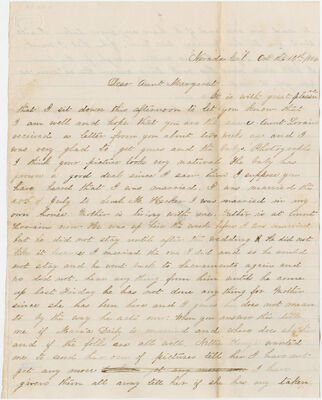 Nevada Cal. Oct the 18th
Dear Aunt Margaret
It is with great pleasure
that I sit down this afternoon to let you know that
I am well and hope that you are the same Aunt Lorain
received a letter from you about two weeks ago and I
was very glad to get yours and the babys Photographs
I think your picture looks very natural the baby has
grown a good deal since I saw him I suppose you
have heard that I was married. I was married the
of July to M. Hacker I was married in my
own house Mother is living with me. Father is at Aunt
Lorains now. He was up here the week before I was married
but he did not stay until after the wedding. He did not
like it because I married the one I did and so he would
not stay and he went back to Sacramento again and
we did not hear any thing from him until he came
up last Friday he has not done any thing for Mother
since she has been here and I guess he does not mean
to by the way he acts now. When you answer this letter
me if Maria Daily is married and where does she
and if the folks are all well. Nettie wanted
me to send her one of pictures tell her I have not
got any more I have
given them all away tell her if she has any taken